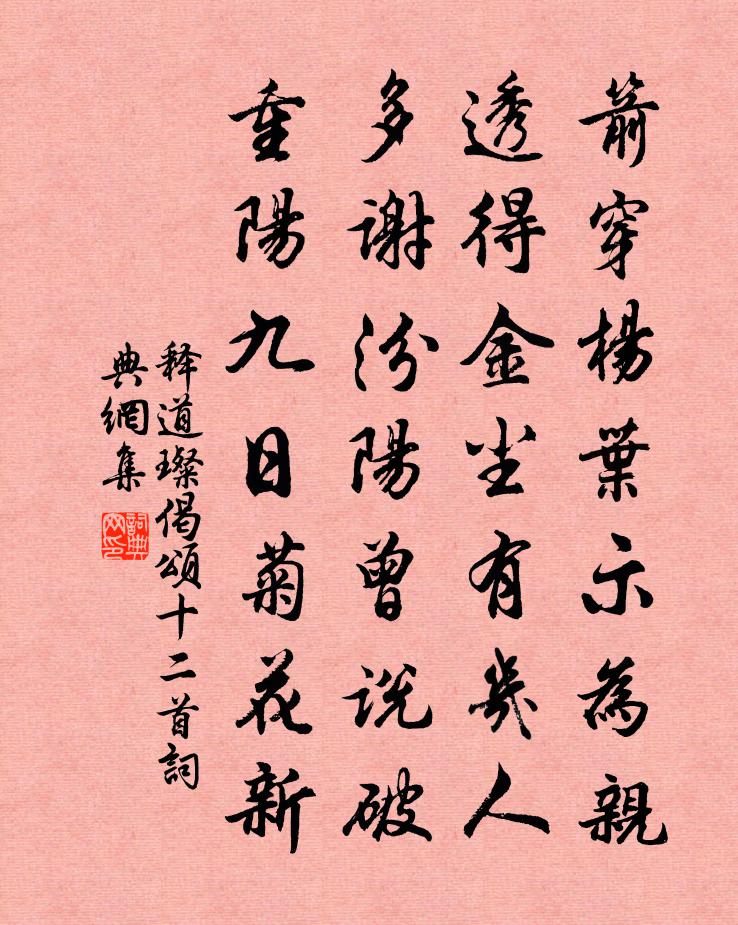 箭穿楊葉示為親
透得金尘有幾人
多謝汾陽曾説破
重陽九日菊花新
释道璨偈頌十二首詞
典網集
詞典
网印